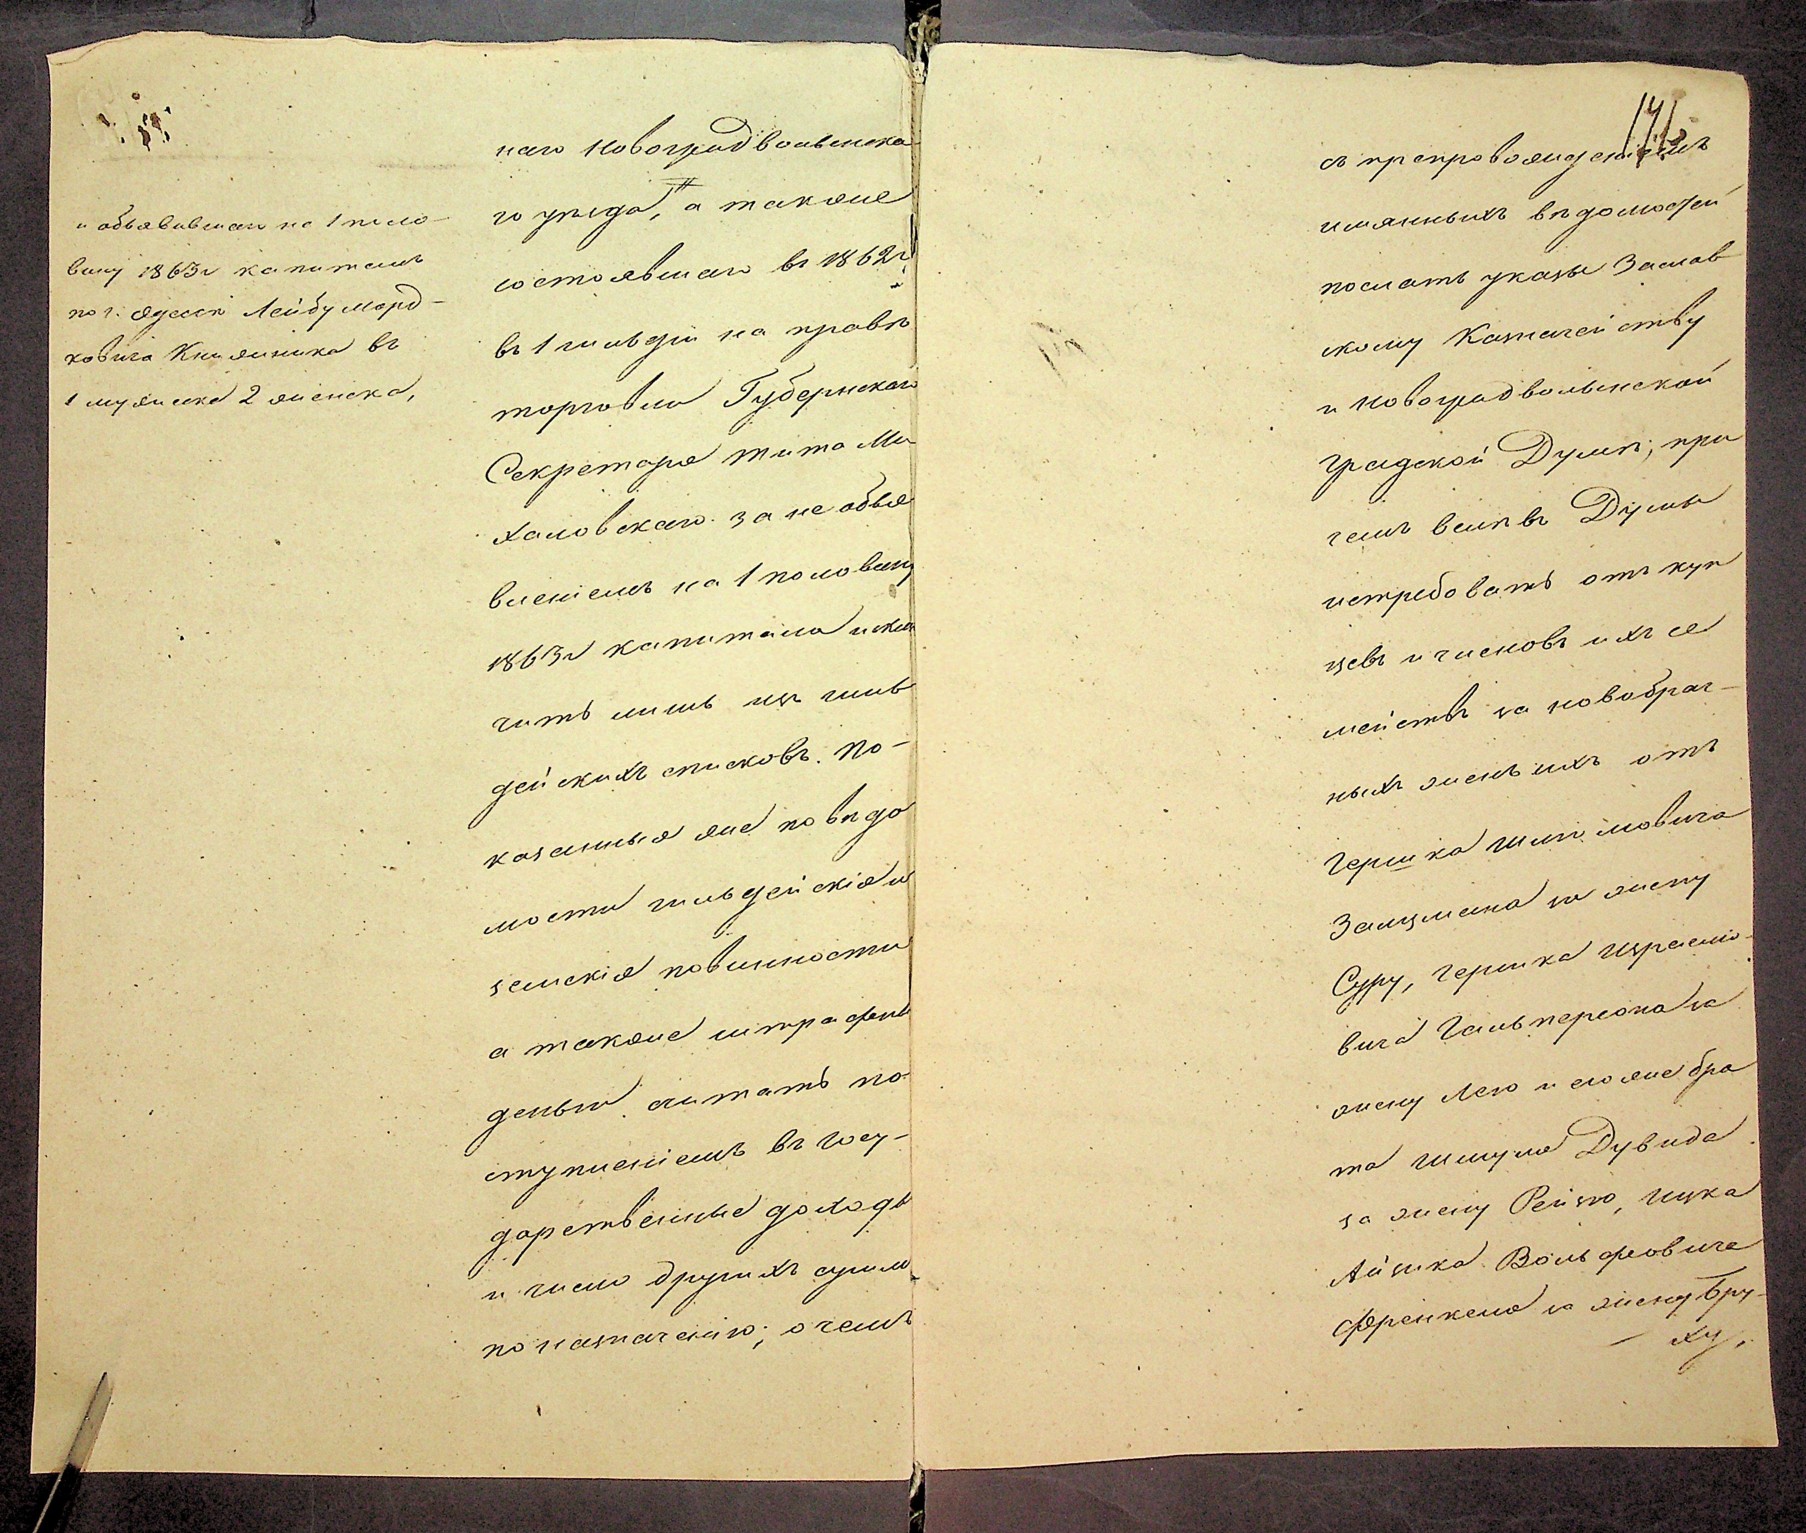 и объявившаго на 1 поло-
вину 1863 г капиталъ
по г. Одессѣ Лейбу Морд-
ковича Книжника въ
1 мужеска 2 женска,
наго Новоградволынска
го уѣзда, а также
состоявшаго въ 1862 г
въ 1 гильдіи на правѣ
торговли Губернскаго
Секретаря Тита Ми
халовскаго за не объя
вленіемъ на 1 половину
1863 г капитала исклю
чить лишь изъ гиль
дейскихъ списковъ. По-
казанныя же по вѣдо
мости гильдейскія и
земскія повинности
а также штрафныя
деньги считать по
ступленіемъ въ госу-
дарственные доходы
и число другихъ суммъ
по назначенію; о чемъ
съ препровожденіемъ
имянныхъ вѣдомостей
послать указы Заслав
скому Казначейству
и Новоградволынской
градской Думѣ; при
чемъ велѣть Думѣ
истребовать отъ куп
цевъ и членовъ ихъ се
мействъ за новобрач-
ныхъ женъ ихъ отъ
Гершка Шлiомовича
Залцмана за жену
Суру, Гершка Израилю-
вича Гальперсона за
жену Лею и его же бра
та Шмуля Дувида
за жену Рейзю, Ицка
Айзика Вольфовича
Френкеля за жену Бру-
ху,